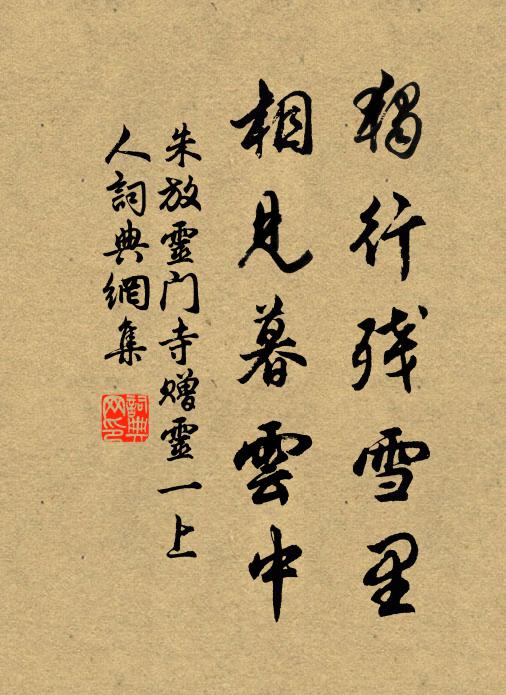 獨行残雪里
相見暮雲中
朱放靈门寺赠靈一上
人詞典網集
詞典
网印